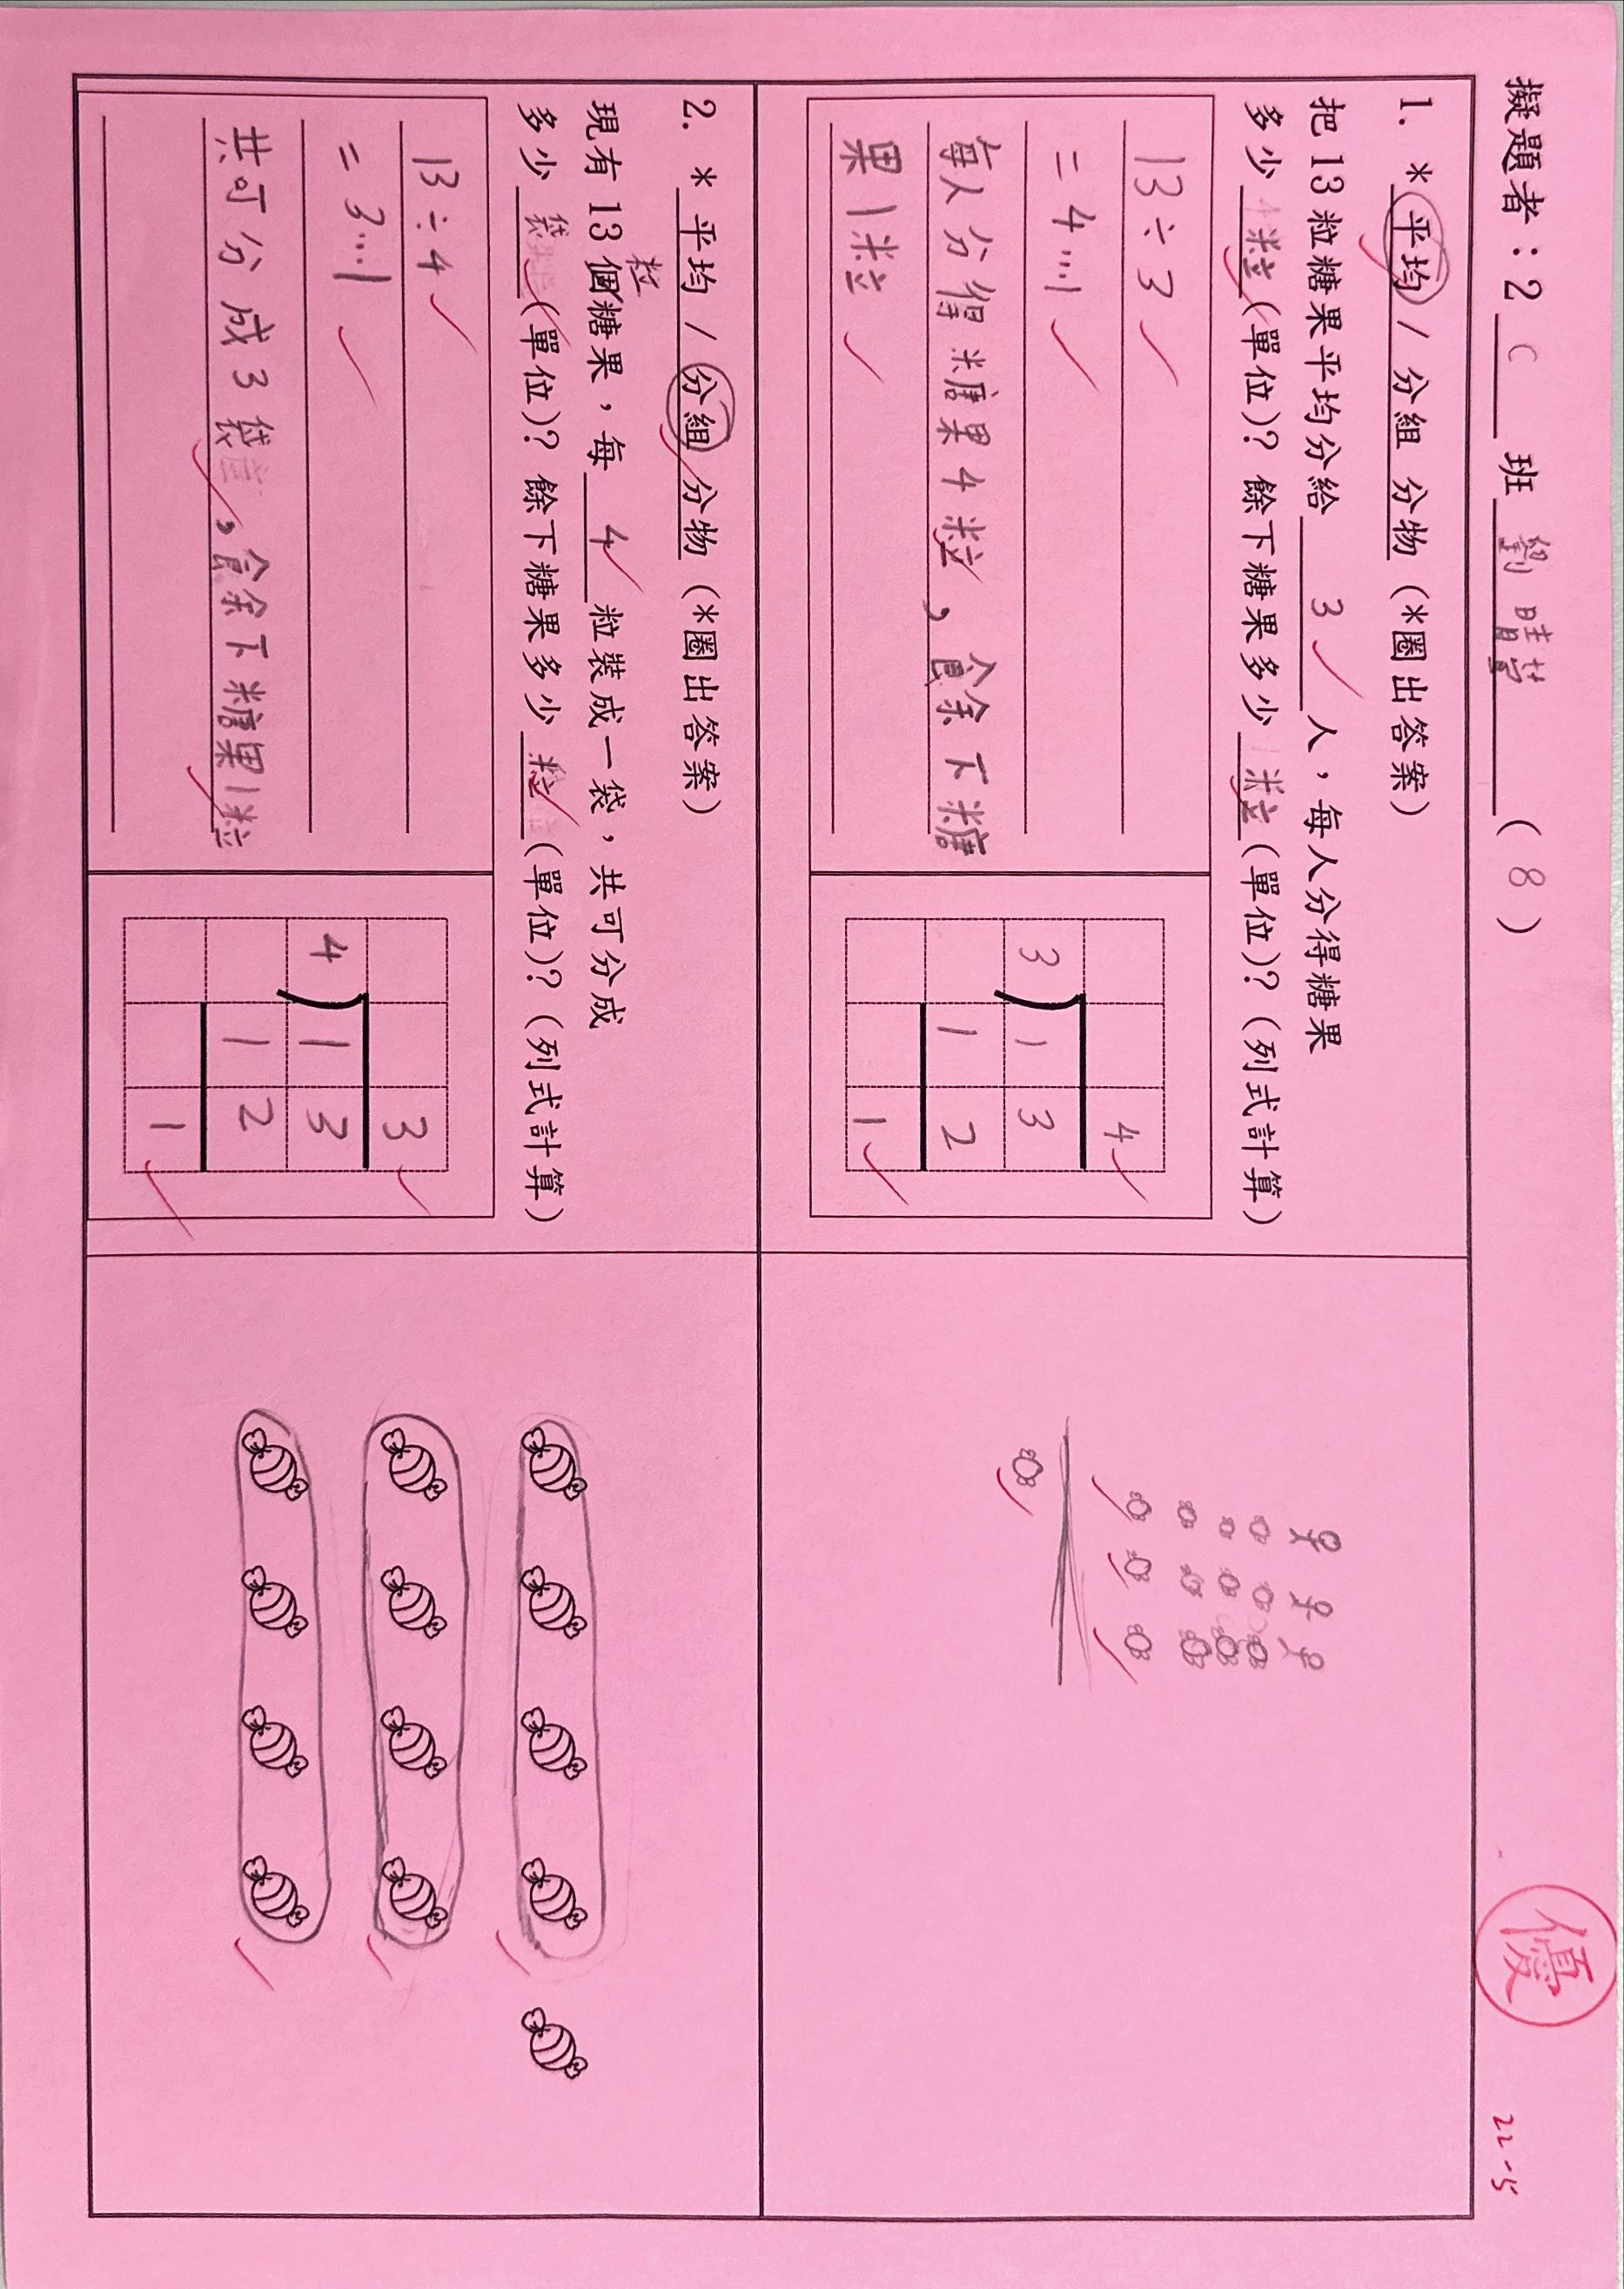 擬題者：2 C 班 劉晴 (8)
優
22-5
1. *平均 / 分組 分物 (*圈出答案)
把 13 粒糖果平均分給 3 人，每人分得糖果
多少 粒 (單位)? 餘下糖果多少 粒 (單位)? (列式計算)
13÷3
= 4…1
每人分得糖果4粒，餘下糖
果1粒
4
3 1 3
1 2
1
2. *平均 / 分組 分物 (*圈出答案)
粒
現有 13 個糖果，每 4 粒裝成一袋，共可分成
多少 袋 (單位)? 餘下糖果多少 粒 (單位)? (列式計算)
13÷4
= 3…1
共可分成3袋，餘下糖果1粒
3
4 1 3
1 2
1